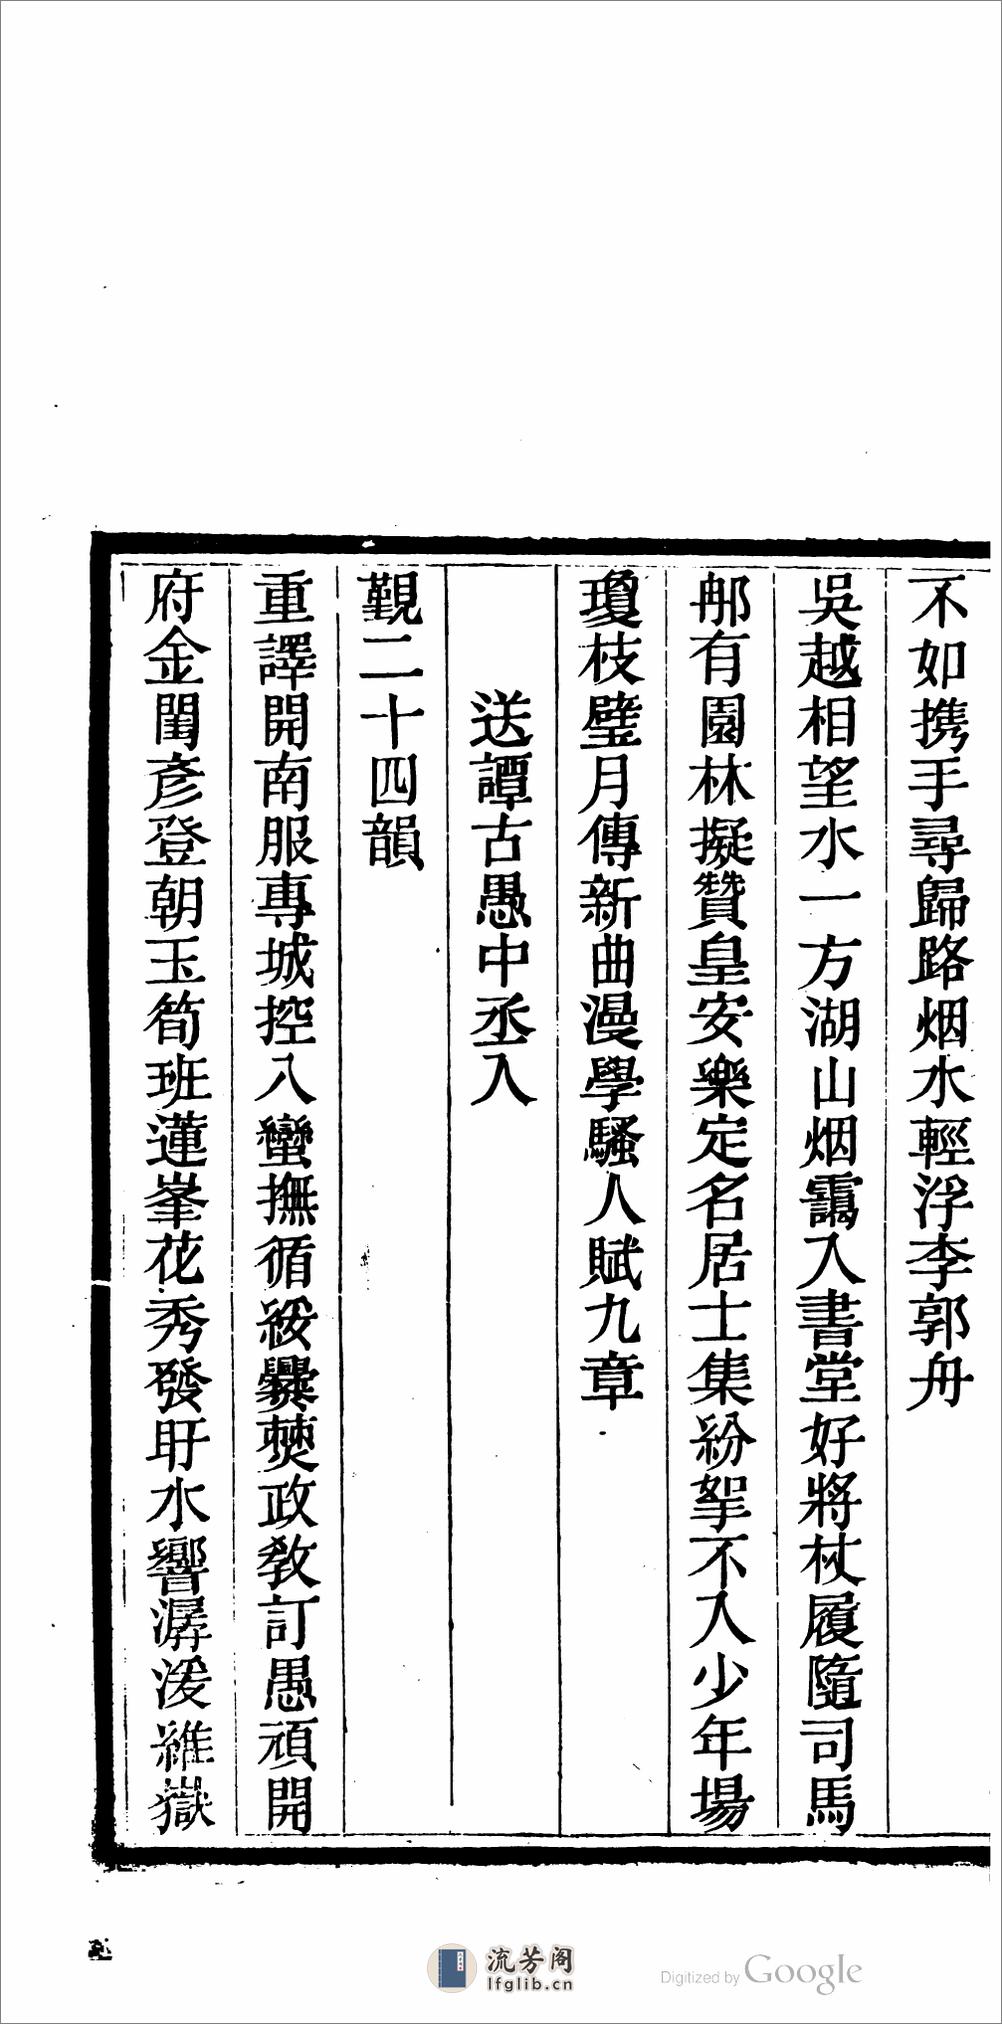 不如携手尋歸路烟水輕浮李郭舟
吳越相望水一方湖山烟靄入書堂好將杖履隨司馬
郍有園林擬贊皇安樂定名居士集紛拏不入少年場
瓊枝璧月傳新曲漫學騷人賦九章
送譚古愚中丞入
覲二十四韻
重譯開南服專城控八蠻撫循綏爨僰政教訂愚頑開
府金閨彥登朝玉筍班蓮峯花秀發盱水響潺湲維嶽
流芳阁
lfglib.cn
Digitized by Google